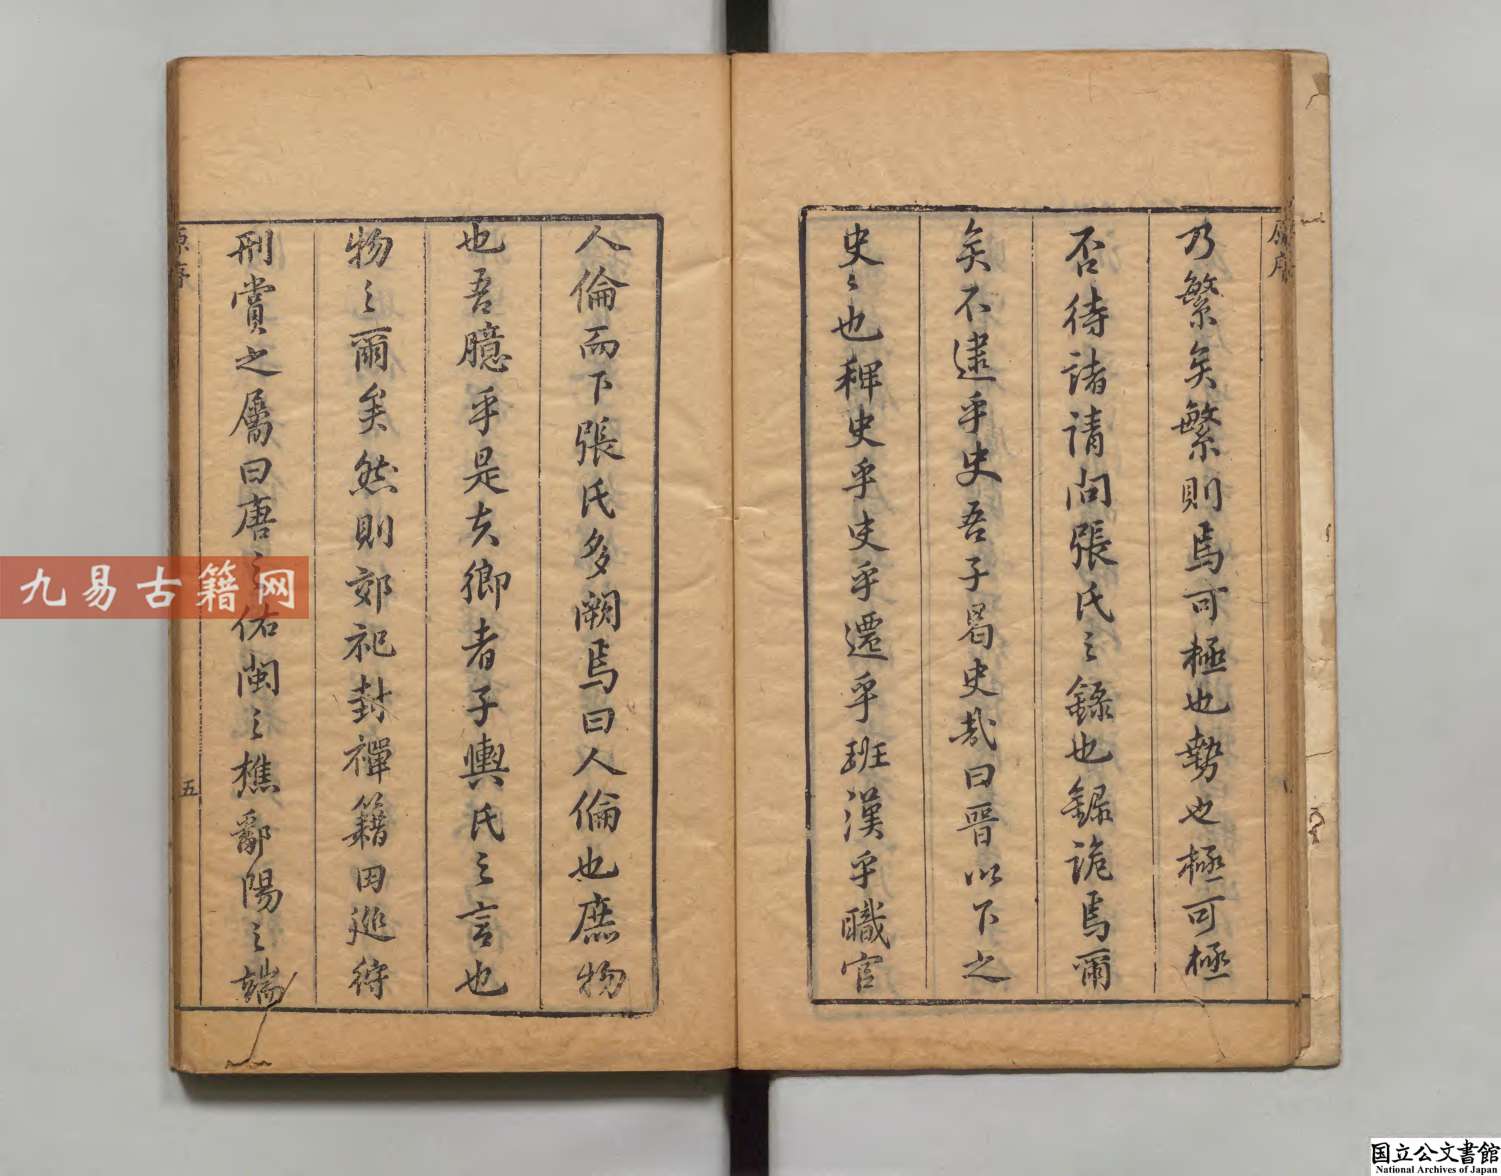 乃繁矣繁則焉可極也勢也極可極
否待諸請問張氏之錄也錄詭焉爾
矣不逮乎史吾子曷史哉曰晉以下之
史〻也稗史乎史乎遷乎班漢乎職官
人倫而下張氏多闕焉曰人倫也庶物
也吾臆乎是夫卿者子輿氏之言也
物之爾矣然則郊祀封禪籍田巡狩
刑賞之屬曰唐之佑閩之樵鄱陽之端
原序
五
九易古籍网
国立公文書館
National Archives of Japan